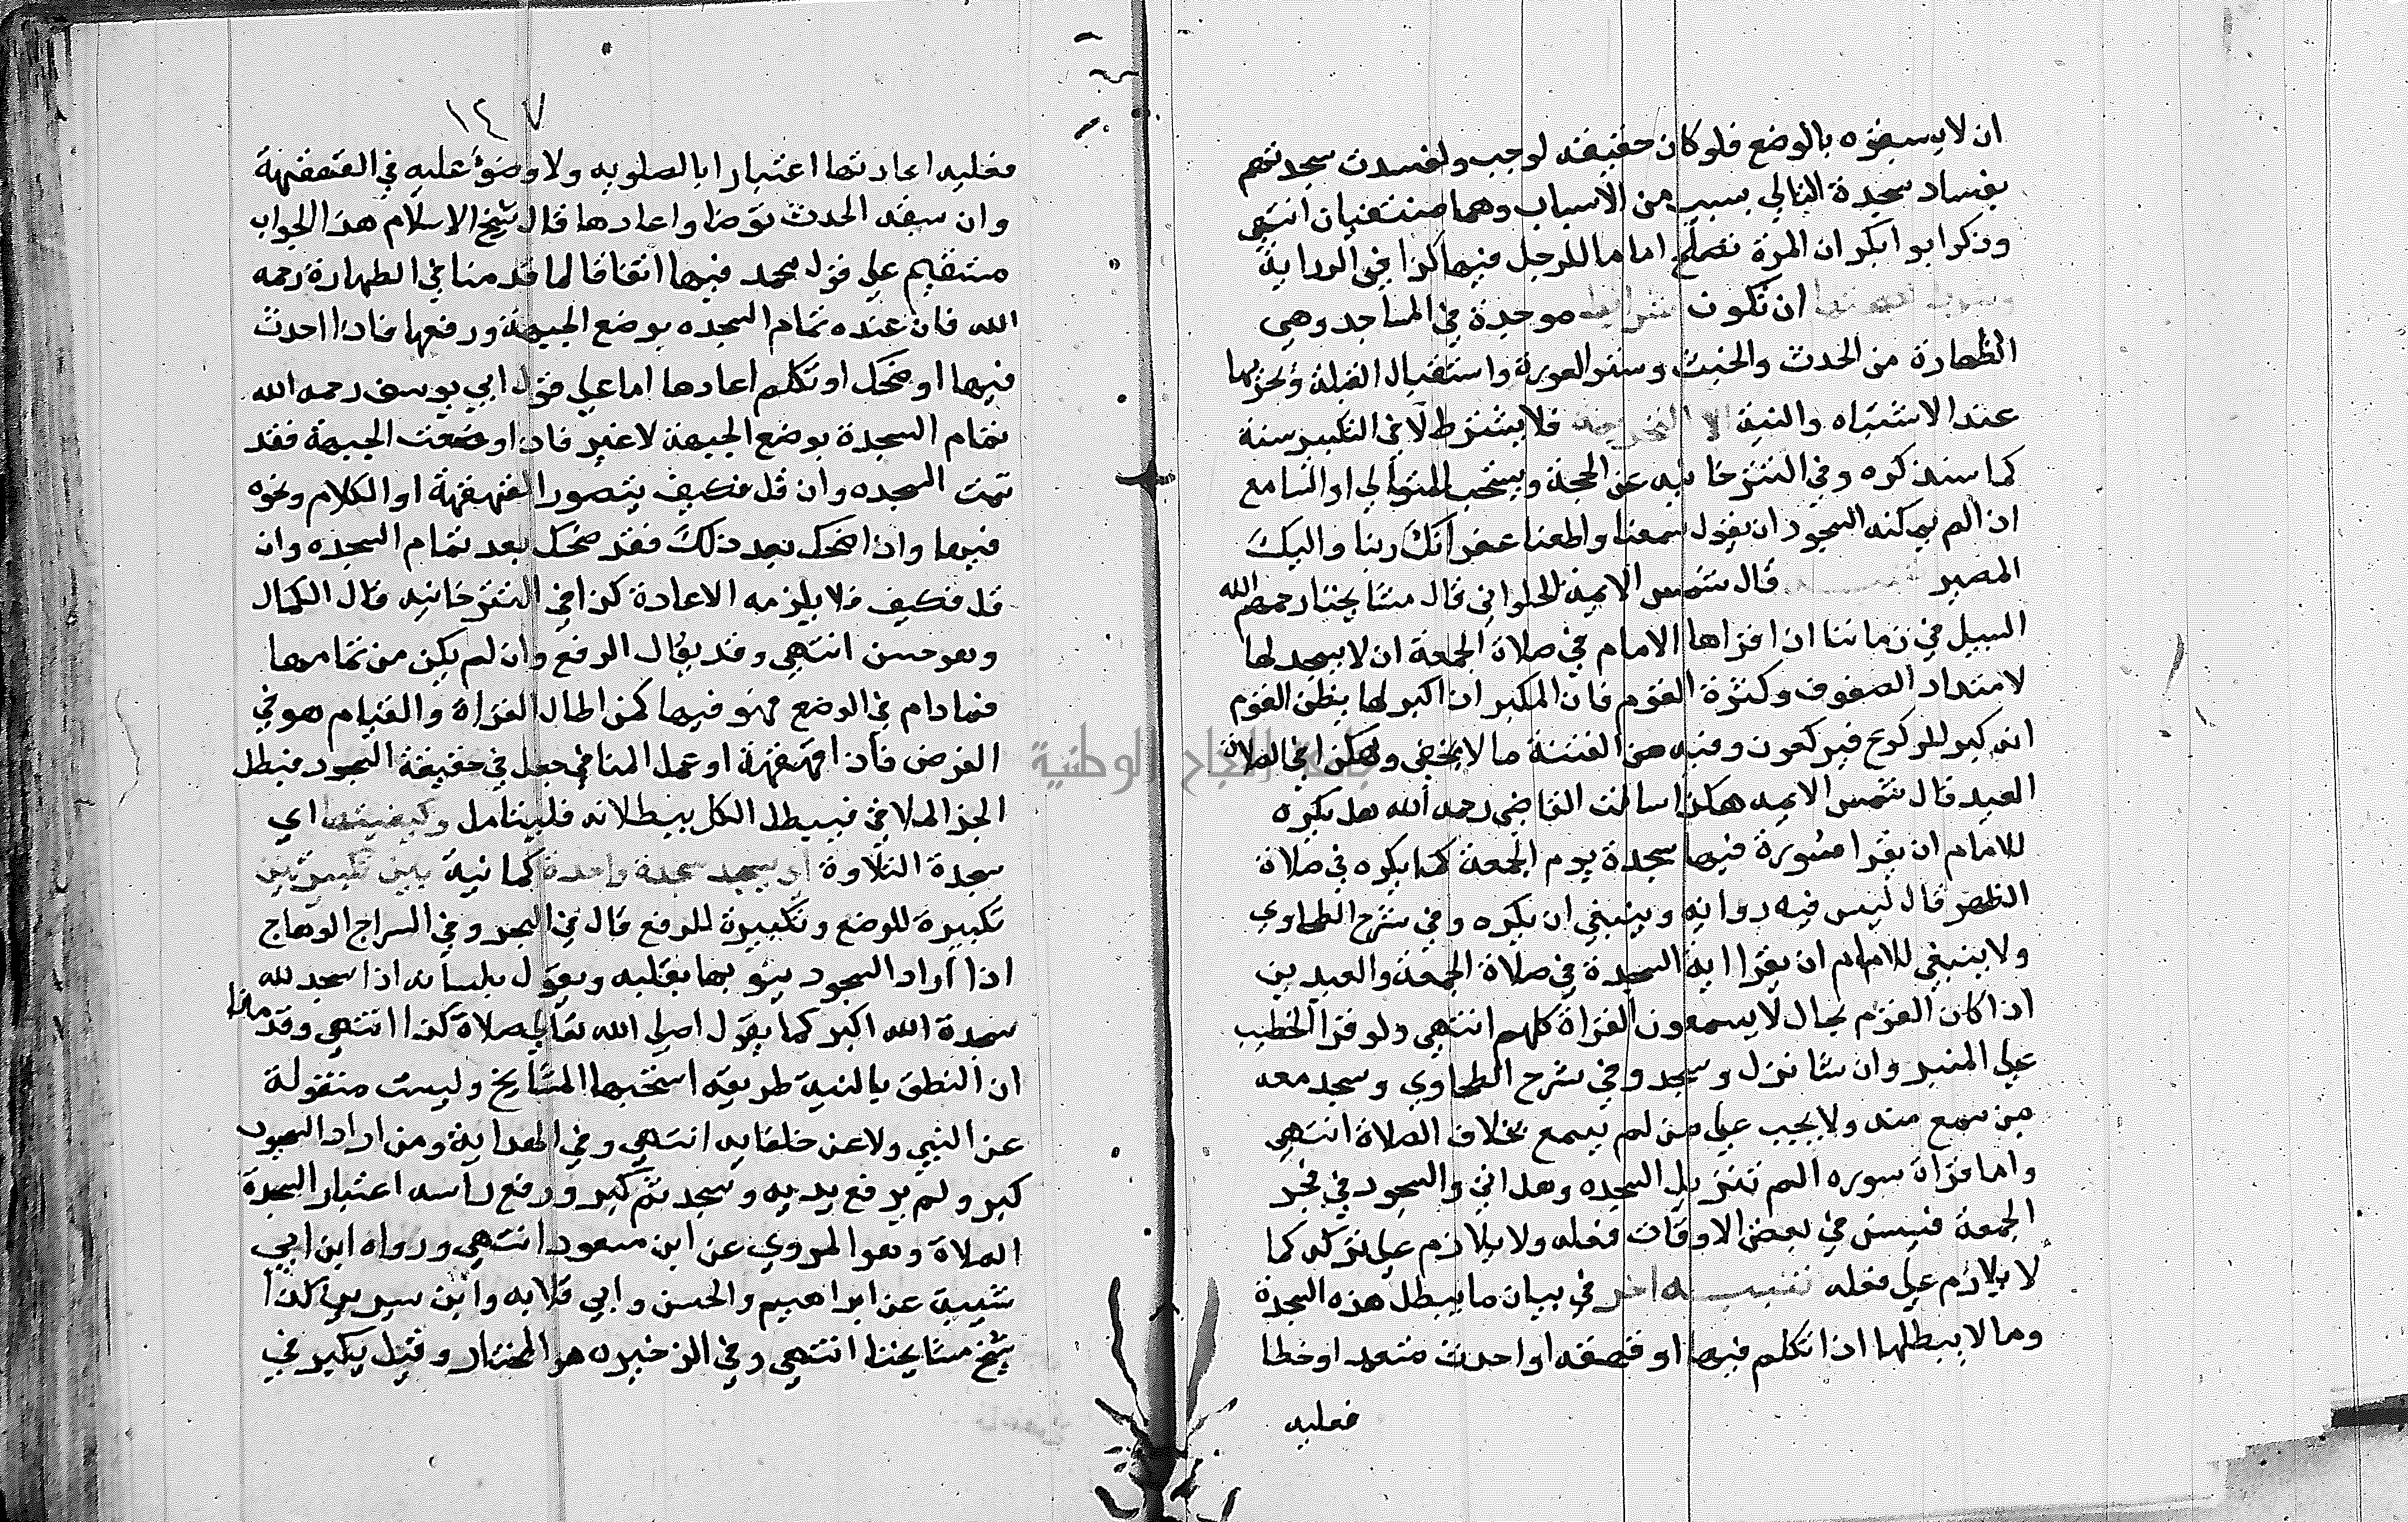 ان لا يسبقوه بالوضع فلو كان حقيقة لوجب ولفسدت سجدتهم
بفساد سجدة التالي بسبب من الاسباب وهما منتفيان انتهي
وذكر ابو ابكر ان المرة تصلح اماما للرجل فيها كذا في الدراية
ان تكون شرائط موحدة في المساجد وهي
الطهارة من الحدث والخبث وستر العورة واستقبال القبلة وتحريها
عند الاشتباه والنية الا التحريمة فلا يشترط لا في التكبير سنة
كما سنذكره وفي التترخانيه عن الحجة ويستحب للتالي او السامع
اذا لم يمكنه السجود ان يقول سمعنا واطعنا غفرانك ربنا واليك
المصير تنبيه قال شمس الايمه الحلواني قال مشايخنا رحمهم الله
السبيل في زماننا اذا قراها الامام في صلاة الجمعة ان لا يسجد لها
لامتداد الصفوف وكثرة القوم فان المكبر اذا كبر لها يظن القوم
انه كبر للركوع فيركعون وفيه من الفتنة ما لا يخفي وهكذا في الصلاة
العيد قال شمس الايمه هكذا سالت القاضي رحمه الله هل يكره
للامام ان يقرا سورة فيها سجدة يوم الجمعة كما يكره في صلاة
الظهر قال ليس فيه روايه وينبغي ان يكره وفي شرح الطحاوي
ولا ينبغي للامام ان يقرا اية السجدة في صلاة الجمعة والعيدين
اذا كان القوم بحال لا يسمعون القراة كلهم انتهي ولو قرا الخطيب
علي المنبر وان شا نزل وسجد وفي شرح الطحاوي وسجد معه
من سمع منه ولا يجب علي من لم يسمع بخلاف الصلاة انتهي
واما قراة سوره الم تنزيل السجده وهل اتي والسجود في فجر
الجمعة فيسن في بعض الاوقات فعله ولا يلازم علي تركه كما
لا يلازم علي فعله تنبيه اخر في بيان ما يبطل هذه السجدة
وما لا يبطلها اذا تكلم فيها او قهقه او احدث متعمدا او خطا
فعليه
١٤٧
فعليه اعادتها اعتبارا بالصلوبه ولا وضوء عليه في القهقهة
وان سبقه الحدث توضا واعادها قال شيخ الاسلام هذا الجواب
مستقيم علي قول محمد فيها اتفاقا لما قدمنا في الطهارة رحمه
الله فان عنده تمام السجده بوضع الجبهة ورفعها فاذا احدث
فيها او ضحك او تكلم اعادها اما علي قول ابي يوسف رحمه الله
تمام السجدة بوضع الجبهة لا غير فاذا وضعت الجبهة فقد
تمت السجده وان قل فكيف يتصور القهقهة او الكلام ونحوه
فيها وان ضحك بعد ذلك فقد ضحك بعد تمام السجده وان
قل فكيف فلا يلزمه الاعادة كذا في التترخانيه قال الكمال
وهو حسن انتهي وقد يقال الرفع وان لم يكن من تمامها
فما دام في الوضع فهو فيها كمن اطال القراة والقيام هو في
الفرض فاذا قهقهة او عمل المنافي حصل في حقيقة السجود فيبطل
الجز الملاقي فيبطل الكل ببطلانه فليتامل وكيفيتها اي
سجدة التلاوة ان يسجد سجدة واحدة كما نية بين تكبيرتين
تكبيرة للوضع وتكبيرة للرفع قال في البحر وفي السراج الوهاج
اذا اراد السجود ينوبها بقلبه ويقول بلسانه اذا سجد لله
سجدة الله اكبر كما يقول اصلي الله تعالي صلاة كذا انتهي وقد قدمنا
ان النطق بالنية طريقه استحبها المشايخ وليست منقولة
عن النبي ولا عن خلفايه انتهي وفي الهداية ومن اراد السجود
كبر ولم يرفع يديه وسجد ثم كبر ورفع راسه اعتبارا السجدة
الصلاة وهو المروي عن ابن مسعود انتهي ورواه ابن ابي
شيبة عن ابراهيم والحسن وابي قلابه وابن سيرين كذا
شيخ مشايخنا انتهي وفي الذخيره هو المختار وقيل يكبر في
جامعة النجاح الوطنية